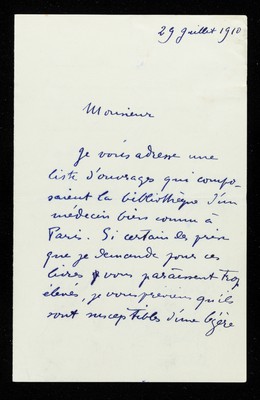 29 Juillet 1910
Monsieur
Je vous adresse une
liste d'ouvrages qui compo-
saient la bibliothèque d'un
médecin bien connu à
Paris. Si certain des prix
que je demande pour ces
livres vous paraissent trop
élevés, je vous préviens qu'ils
sont susceptibles d'une légère